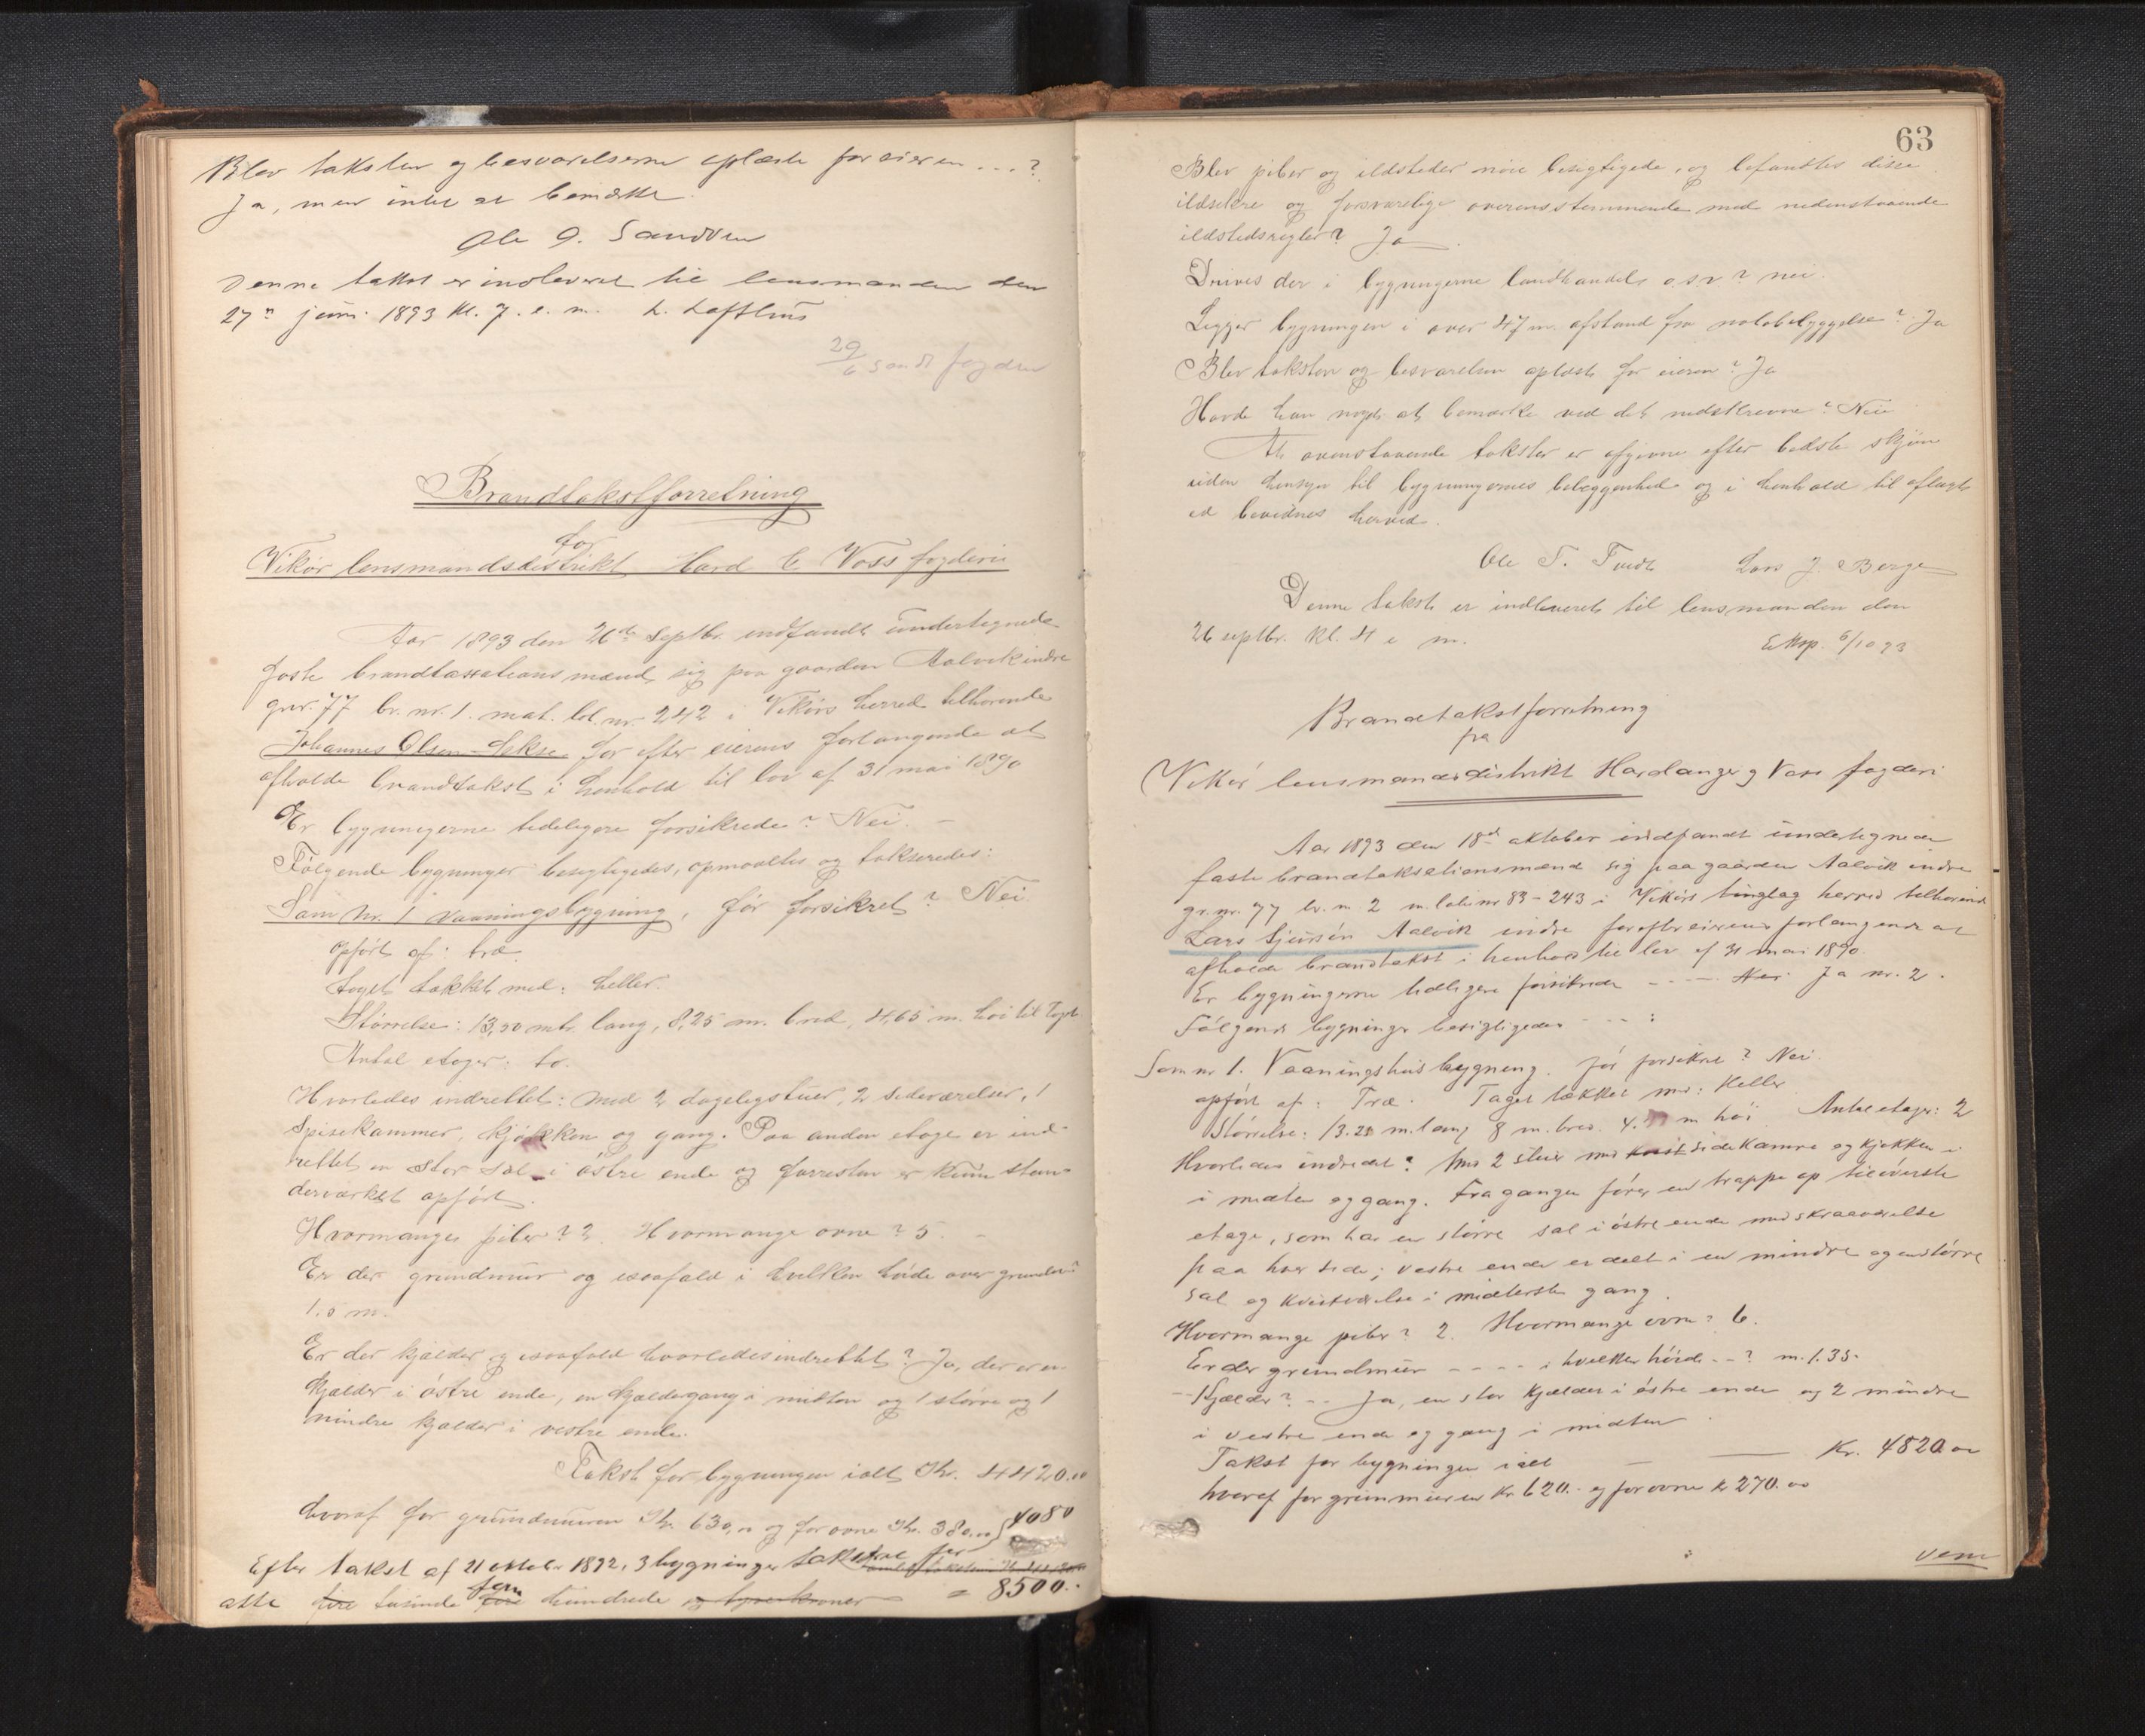 Blev taksten og besvarelserne oplæste for eieren ...?
Ja, men intet at bemærke.
Ole O. Sandven
Denne takst er indleveret til lensmanden den
27n juni 1893 kl. 7 e. m. L. Lofthus
29/6 sendt fogden
Brandtakstforretning
for
Vikør lensmandsdistrikt Hard & Voss fogderi
Aar 1893 den 26de Septbr. indfandt undertegnede
faste brandtaxationsmænd sig paa gaarden Aalvik indre
gnr. 77 br. nr. 1. mat. løb. nr. 242 i Vikørs herred tilhørende
Johannes Olsen for efter eierens forlangende at
afholde brandtakst i henhold til lov af 31 mai 1890
Er bygningerne tidligere forsikrede? Nei. –
Følgende bygninger besigtigedes, opmaaltes og takseredes:
Som Nr. 1 Vaaningsbygning, før forsikret? Nei
opført af: træ.
taget tækket med: heller.
Størrelse: 13,50 mtr. lang, 8,25 m. bred, 4,65 m. høi til Tagsk
Antal etager: to.
Hvorledes indrettet: med 2 dagligstuer, 2 sideværelser, 1
Spisekammer, kjøkken og gang. Paa anden etage er ind-
rettet en stor sal i østre ende og forresten er kun sten-
derværket opført.
Hvormange piber? 2. Hvormange ovne? 5. –
Er der grundmur og isaafald i hvilken høide over grunden?
1.5 m.
Er der kjælder og isaafald hvorledes indrettet? Ja, der er en
kjælder i østre ende, en kjældergang i midten og 1 større og 1
mindre kjælder i vestre ende.
Takst for bygningen ialt Kr. 4420.00
hvoraf for grundmuren Kr. 630,00 og for ovne Kr. 380,00 } 4080
Efter takst af 21 oktobr 1892, 3 bygninger takserte for
otte fire tusinde fem fire hundrede og tyve kroner = 8500.-
63
Blev piber og ildsteder nøie besigtigede, og befandtes disse
ildsikre og forsvarlige overensstemmende med nedenstaaende
ildstedsregler? Ja.
Drives der i bygningerne landhandel o.s.v? nei.
Ligger bygningen i over 47 m. afstand fra nabobebyggelse? Ja
Blev taksten og besvarelsen oplæst for eieren? Ja
Havde han noget at bemærke ved det nedskrevne? Nei
At ovenstaaende takster er afgivne efter bedste skjøn
uden hensyn til bygningernes beliggenhed og i henhold til aflagt
ed bevidnes herved.
Ole T. Tvedt Lars J. Berge
Denne takst er indleveret til lensmanden den
26 septbr. kl. 4 e m.
Exsp. 6/10 93
Brandtakstforretning
pa
Vikør lensmandsdistrikt Hardanger og Voss fogderi
Aar 1893 den 18de oktober indfandt undertegnede
faste brandtaksationsmænd sig paa gaarden Aalvik indre
gr. nr. 77 br. n. 2 m. løbenr 83-243 i Vikørs tinglag herred tilhørende
Lars Sjursen Aalvik indre for efter eierens forlangende at
afholde brandtakst i henhold til lov af 31 mai 1890.
Er bygningerne tidligere forsikrede - - - - Nei Ja nr. 2.
Følgende bygninger besigtigedes - - - :
Som nr 1. Vaaningshusbygning. før forsikret? Nei.
opført af: Træ. Taget tækket med: Heller
Størrelse: 13.20 m. lang 8 m. bred. 4. m høi Antal etager: 2
Hvorledes indredet? Med 2 stuer med kvist sidekamre og kjøkken i
i midten og gang. Fra gangen fører en trappe op til øverste
etage, som har en større sal i østre ende med skraaværelse
paa hver side; vestre ende er delt i en mindre og en større
sal og kvistværelse i midterste gang.
Hvormange piber? 2. Hvormange ovne? 6.
Er der grundmur - - - - i hvilken høide - -? m. 1.35.
- - Kjælder? - - Ja, en stor kjælder i østre ende og 2 mindre
i vestre ende og gang i midten.
Takst for bygningen ialt — — Kr. 4820.00
hvoraf for grunmuren Kr 620.- og for ovne kr 270.00
vem